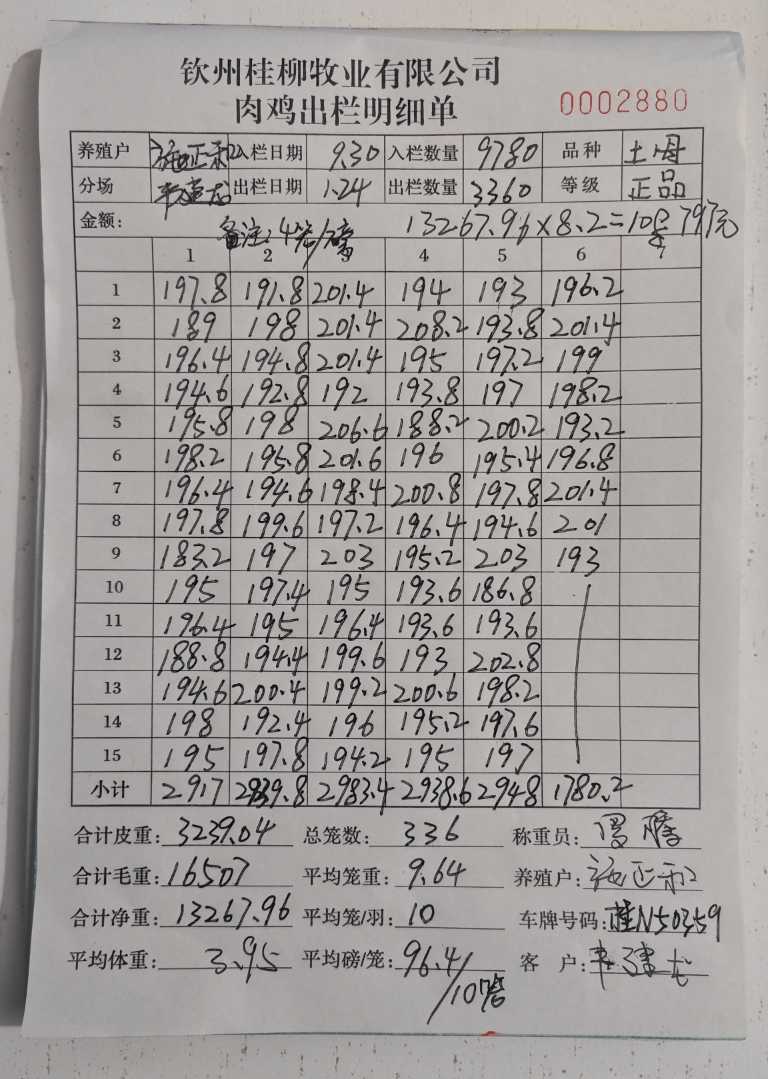 钦州桂柳牧业有限公司
肉鸡出栏明细单 0002880
养殖户 施正和 入栏日期 9.30 入栏数量 9780 品种 土母
分场 出栏日期 1.24 出栏数量 3360 等级 正品
金额: 13267.96×8.2=108797元
备注: 4
1 2 3 4 5 6 7
1 197.8 191.8 201.4 194 193 196.2
2 189 198 201.4 208.2 193.8 201.4
3 196.4 194.8 201.4 195 197.2 199
4 194.6 192.8 192 193.8 197 198.2
5 195.8 198 206.6 188.2 200.2 193.2
6 198.2 195.8 201.6 196 195.4 196.8
7 196.4 194.6 198.4 200.8 197.8 201.4
8 197.8 199.6 197.2 196.4 194.6 201
9 183.2 197 203 195.2 203 193
10 195 197.4 195 193.6 186.8
11 196.4 195 196.4 193.6 193.6
12 188.8 194.4 199.6 193 202.8
13 194.6 200.4 199.2 200.6 198.2
14 198 192.4 196 195.2 197.6
15 195 197.8 194.2 195 197
小计 2917 2939.8 2983.4 2938.6 2948 1780.2
合计皮重: 3239.04 总笼数: 336 称重员:
合计毛重: 16507 平均笼重: 9.64 养殖户: 施正和
合计净重: 13267.96 平均笼/羽: 10 车牌号码: 桂N50359
平均体重: 3.95 平均磅/笼: 96.4/10 客 户: